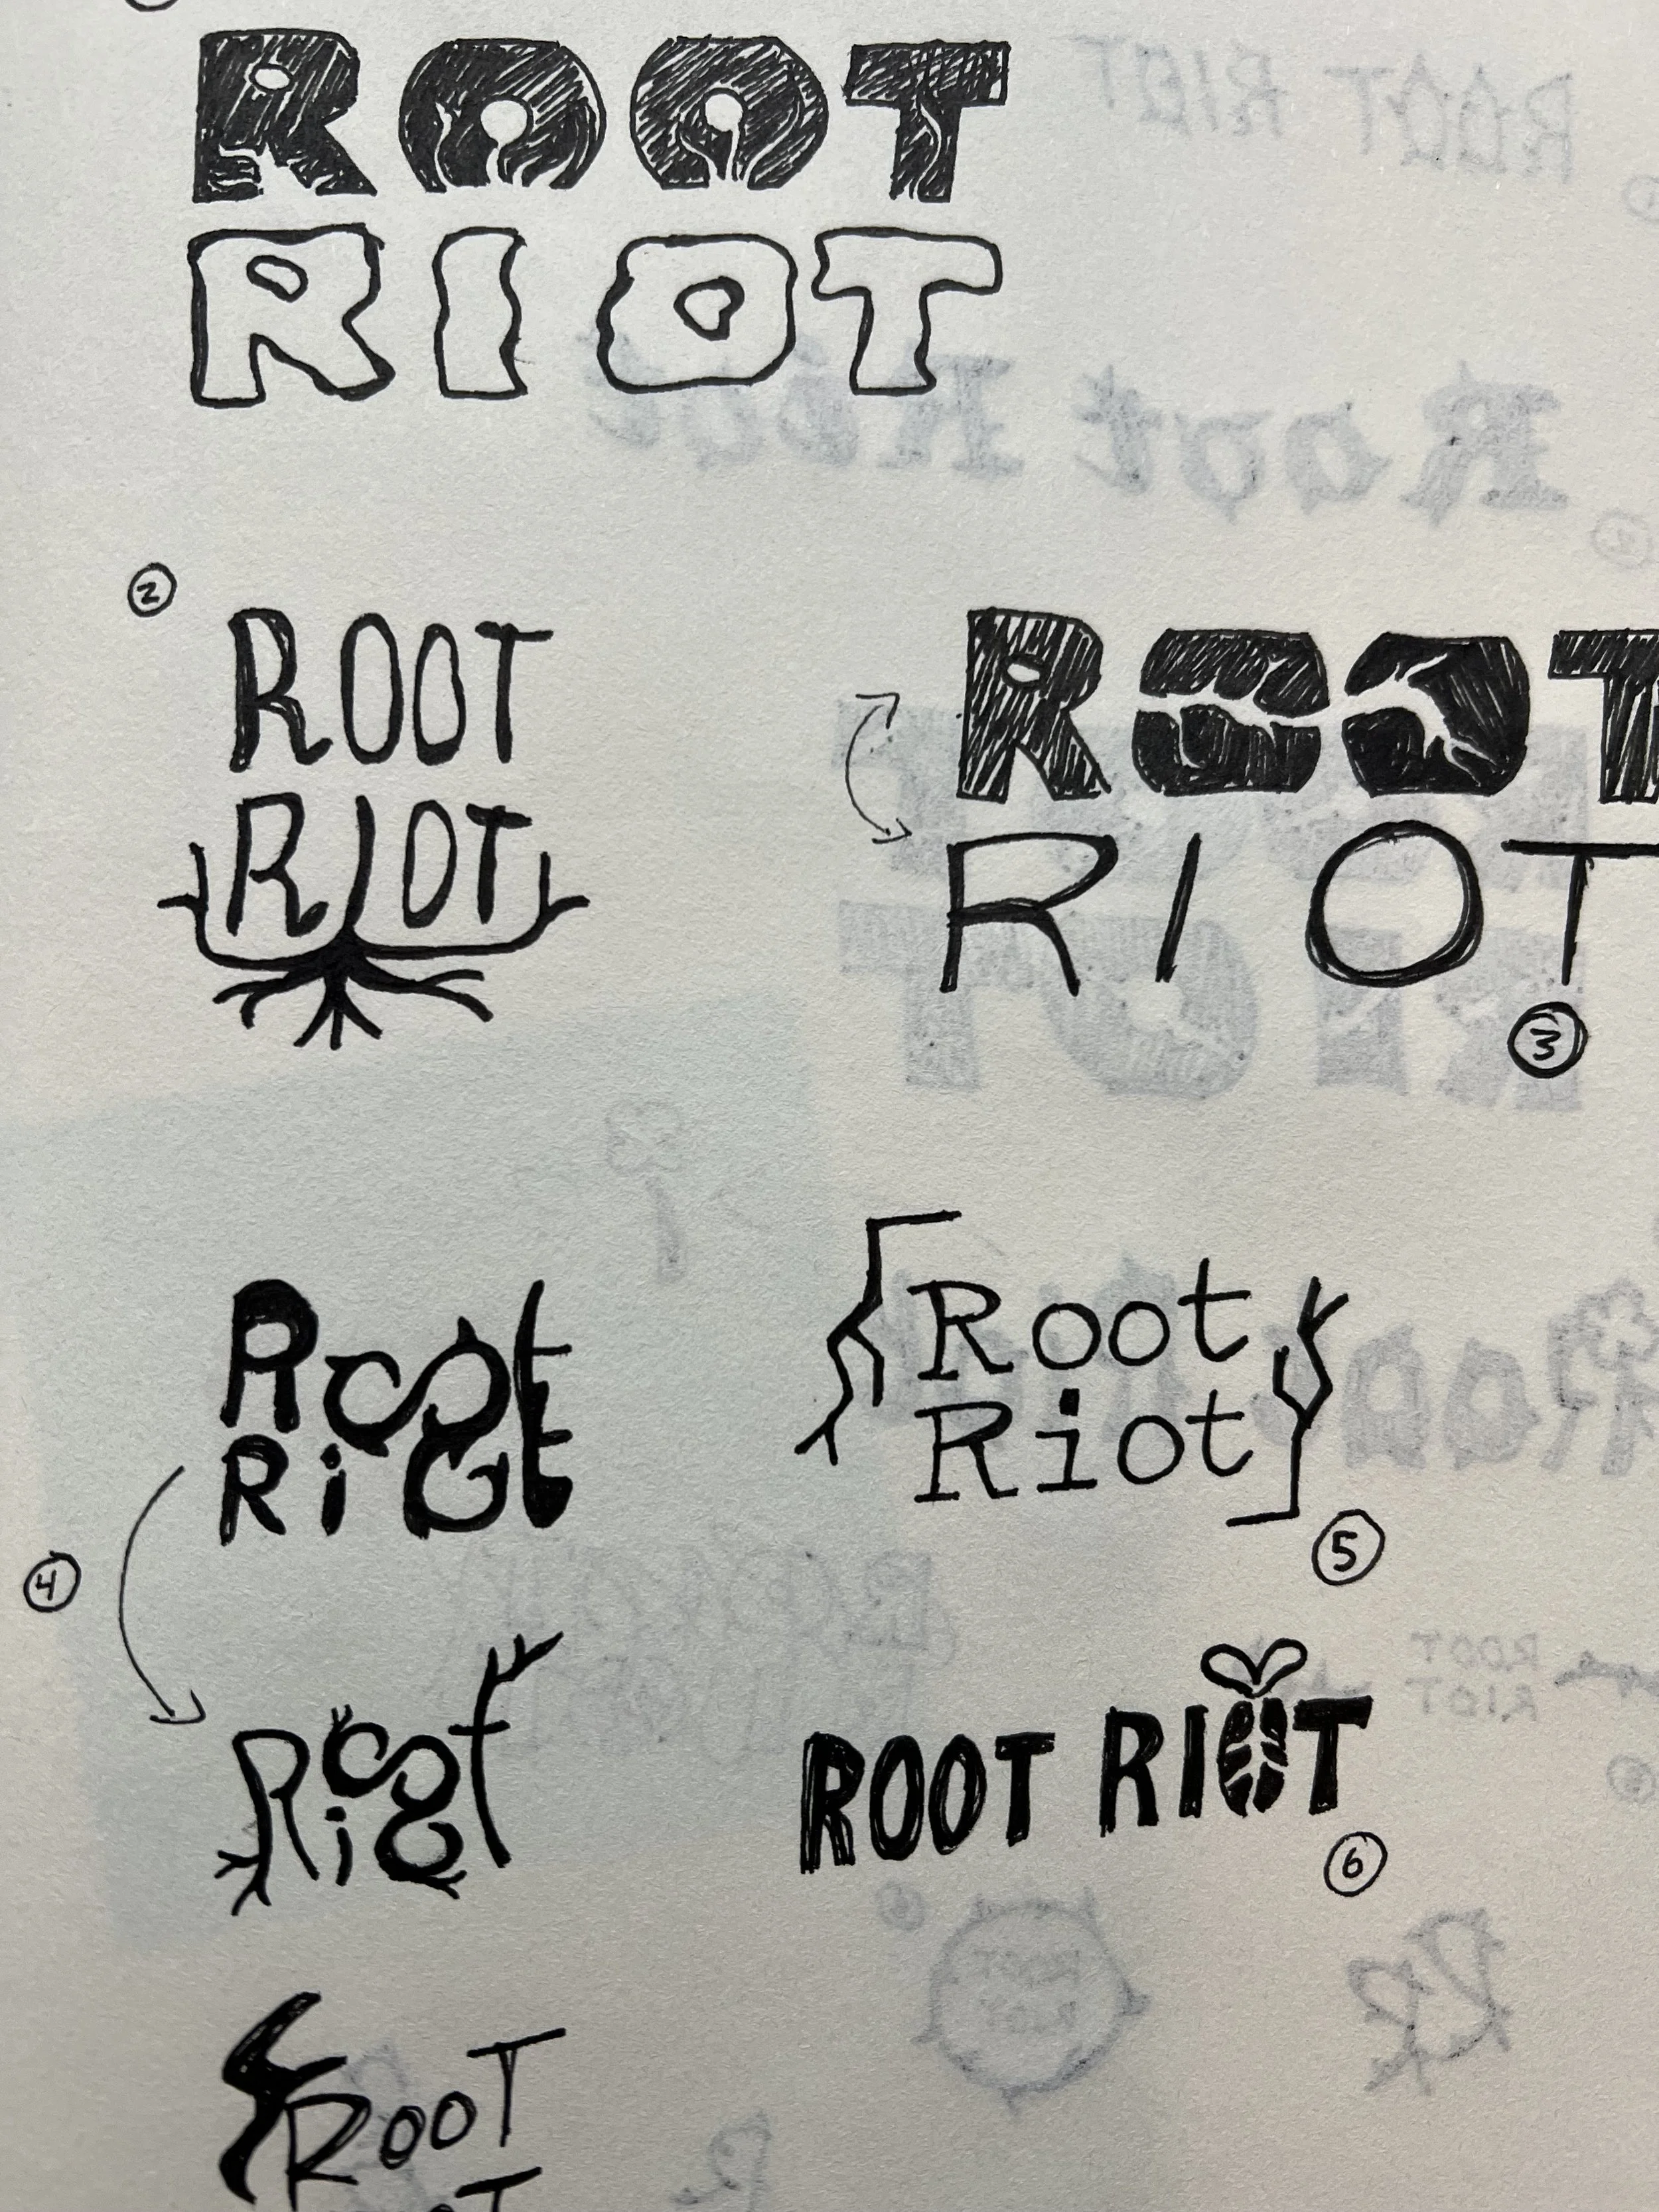 ROOT
RIOT
2
ROOT
RIOT
ROOT
RIOT
3
Root
Riot
4
Root
Riot
5
Root
Riot
ROOT RIOT
6
ROOT